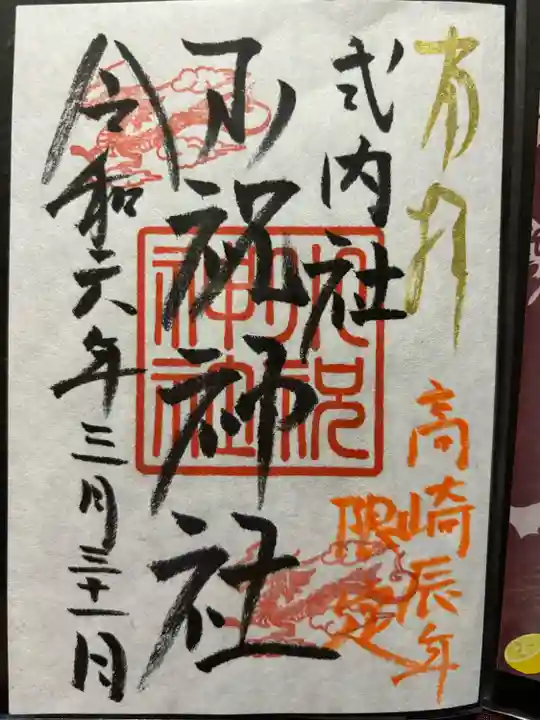 奉拝
高崎辰年
限定
式内社
小祝神社
小祝
神社
令和六年三月三十一日